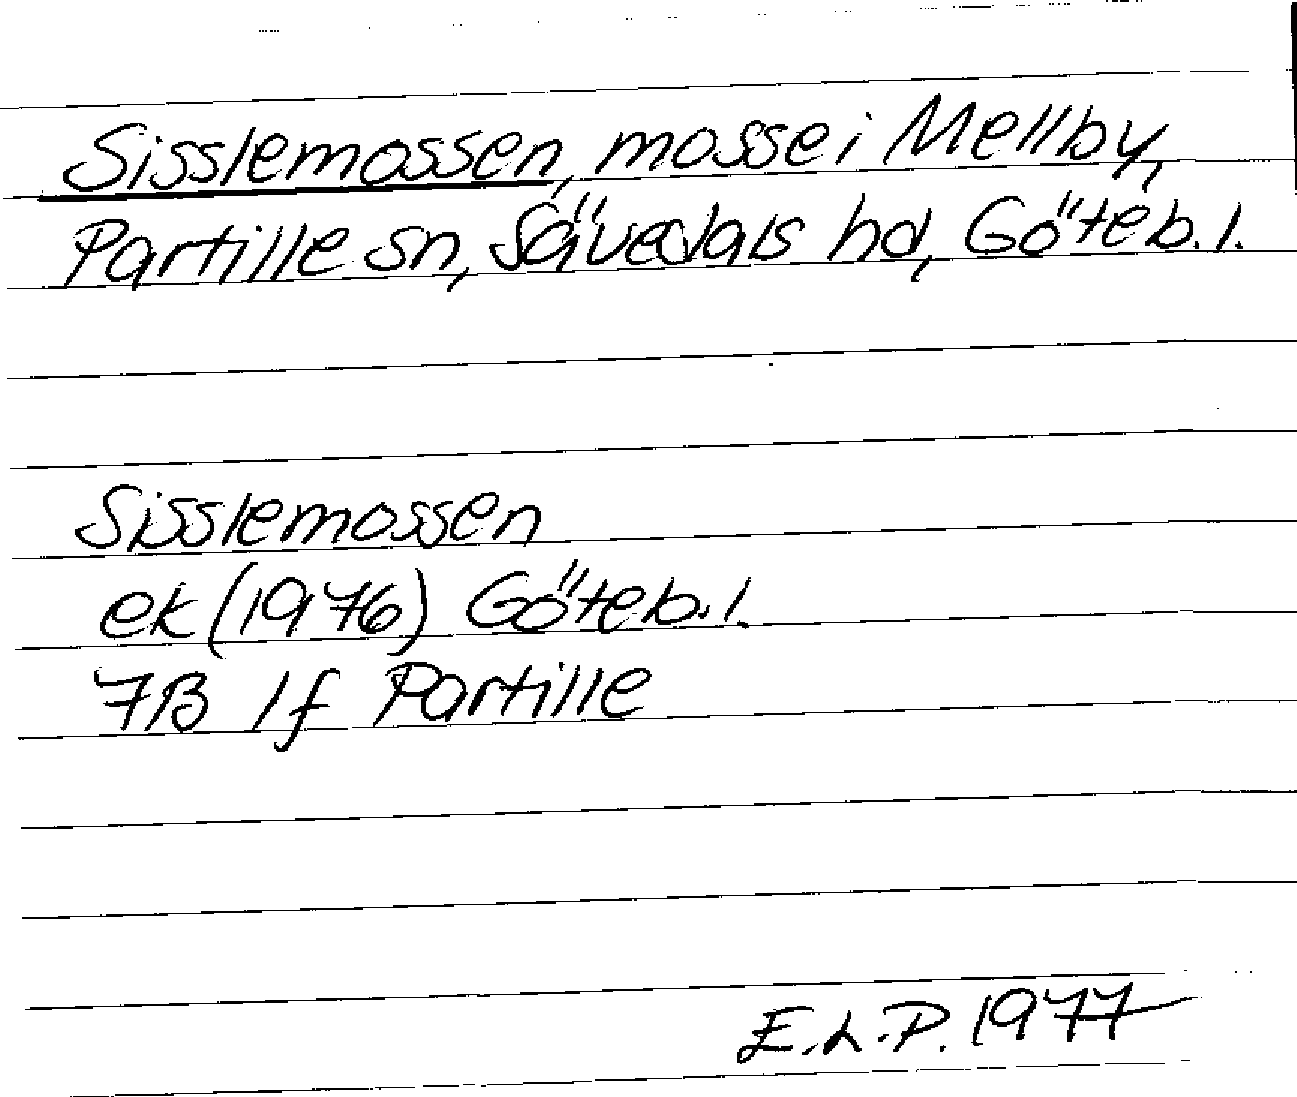 Sisslemossen, mosse i Mellby,
Partille sn, Sävedals hd, Göteb. l.
Sisslemossen
ek (1976) Göteb. l.
7B 1f Partille
E.L.P. 1977